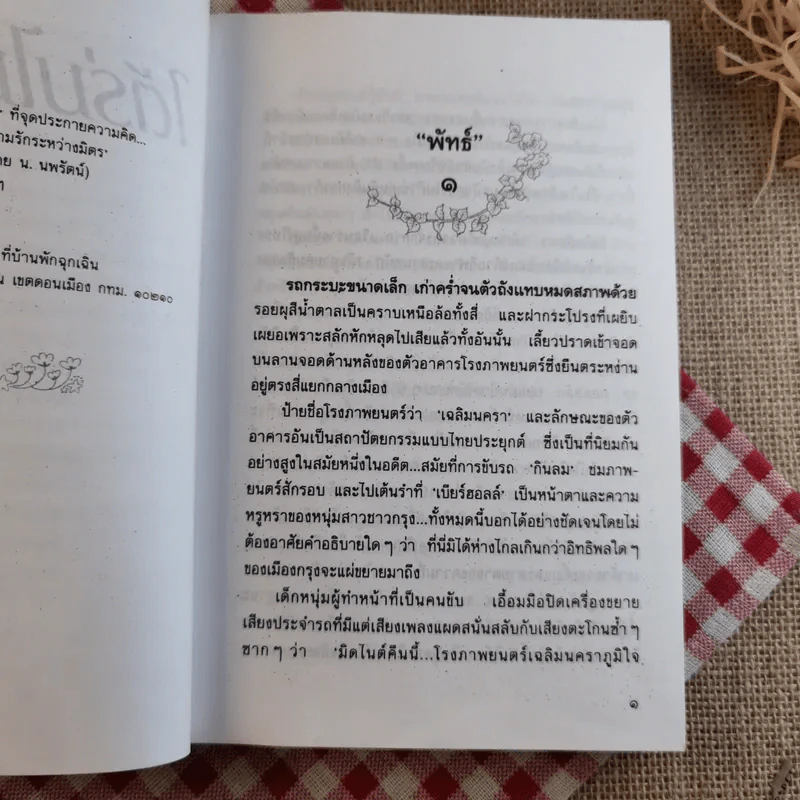 ใต้ร่มไ
ที่จุดประกายความคิด...
ามรักระหว่างมิตร'
าย น. นพรัตน์)
ที่บ้านพักฉุกเฉิน
น เขตดอนเมือง กทม. ๑๐๒๑๐
“พัทธ์”
๑
รถกระบะขนาดเล็ก เก่าคร่ำจนตัวถังแทบหมดสภาพด้วย
รอยผุสีน้ำตาลเป็นคราบเหนือล้อทั้งสี่ และฝากระโปรงที่เผยิบ
เผยอเพราะสลักหักหลุดไปเสียแล้วทั้งอันนั้น เลี้ยวปราดเข้าจอด
บนลานจอดด้านหลังของตัวอาคารโรงภาพยนตร์ซึ่งยืนตระหง่าน
อยู่ตรงสี่แยกกลางเมือง
ป้ายชื่อโรงภาพยนตร์ว่า 'เฉลิมนครา' และลักษณะของตัว
อาคารอันเป็นสถาปัตยกรรมแบบไทยประยุกต์ ซึ่งเป็นที่นิยมกัน
อย่างสูงในสมัยหนึ่งในอดีต...สมัยที่การขับรถ 'กินลม' ชมภาพ-
ยนตร์สักรอบ และไปเต้นรำที่ 'เบียร์ฮอลล์' เป็นหน้าตาและความ
หรูหราของหนุ่มสาวชาวกรุง...ทั้งหมดนี้บอกได้อย่างชัดเจนโดยไม่
ต้องอาศัยคำอธิบายใด ๆ ว่า ที่นี่มิได้ห่างไกลเกินกว่าอิทธิพลใด ๆ
ของเมืองกรุงจะแผ่ขยายมาถึง
เด็กหนุ่มผู้ทำหน้าที่เป็นคนขับ เอื้อมมือปิดเครื่องขยาย
เสียงประจำรถที่มีแต่เสียงเพลงแผดสนั่นสลับกับเสียงตะโกนซ้ำ ๆ
ซาก ๆ ว่า 'มิดไนต์คืนนี้...โรงภาพยนตร์เฉลิมนคราภูมิใจ
๑